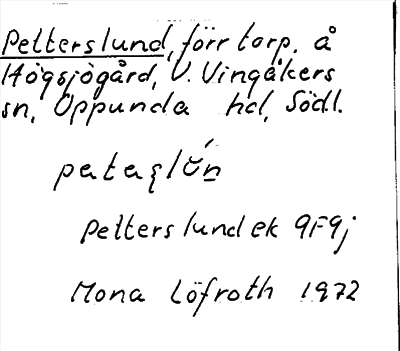 Petterslund, förr torp. å
Högsjögård, V. Vingåkers
sn, Oppunda hd, Södl.
pata꞉lŭ́n
Petterslund ek 9F9j
Mona Löfroth 1972